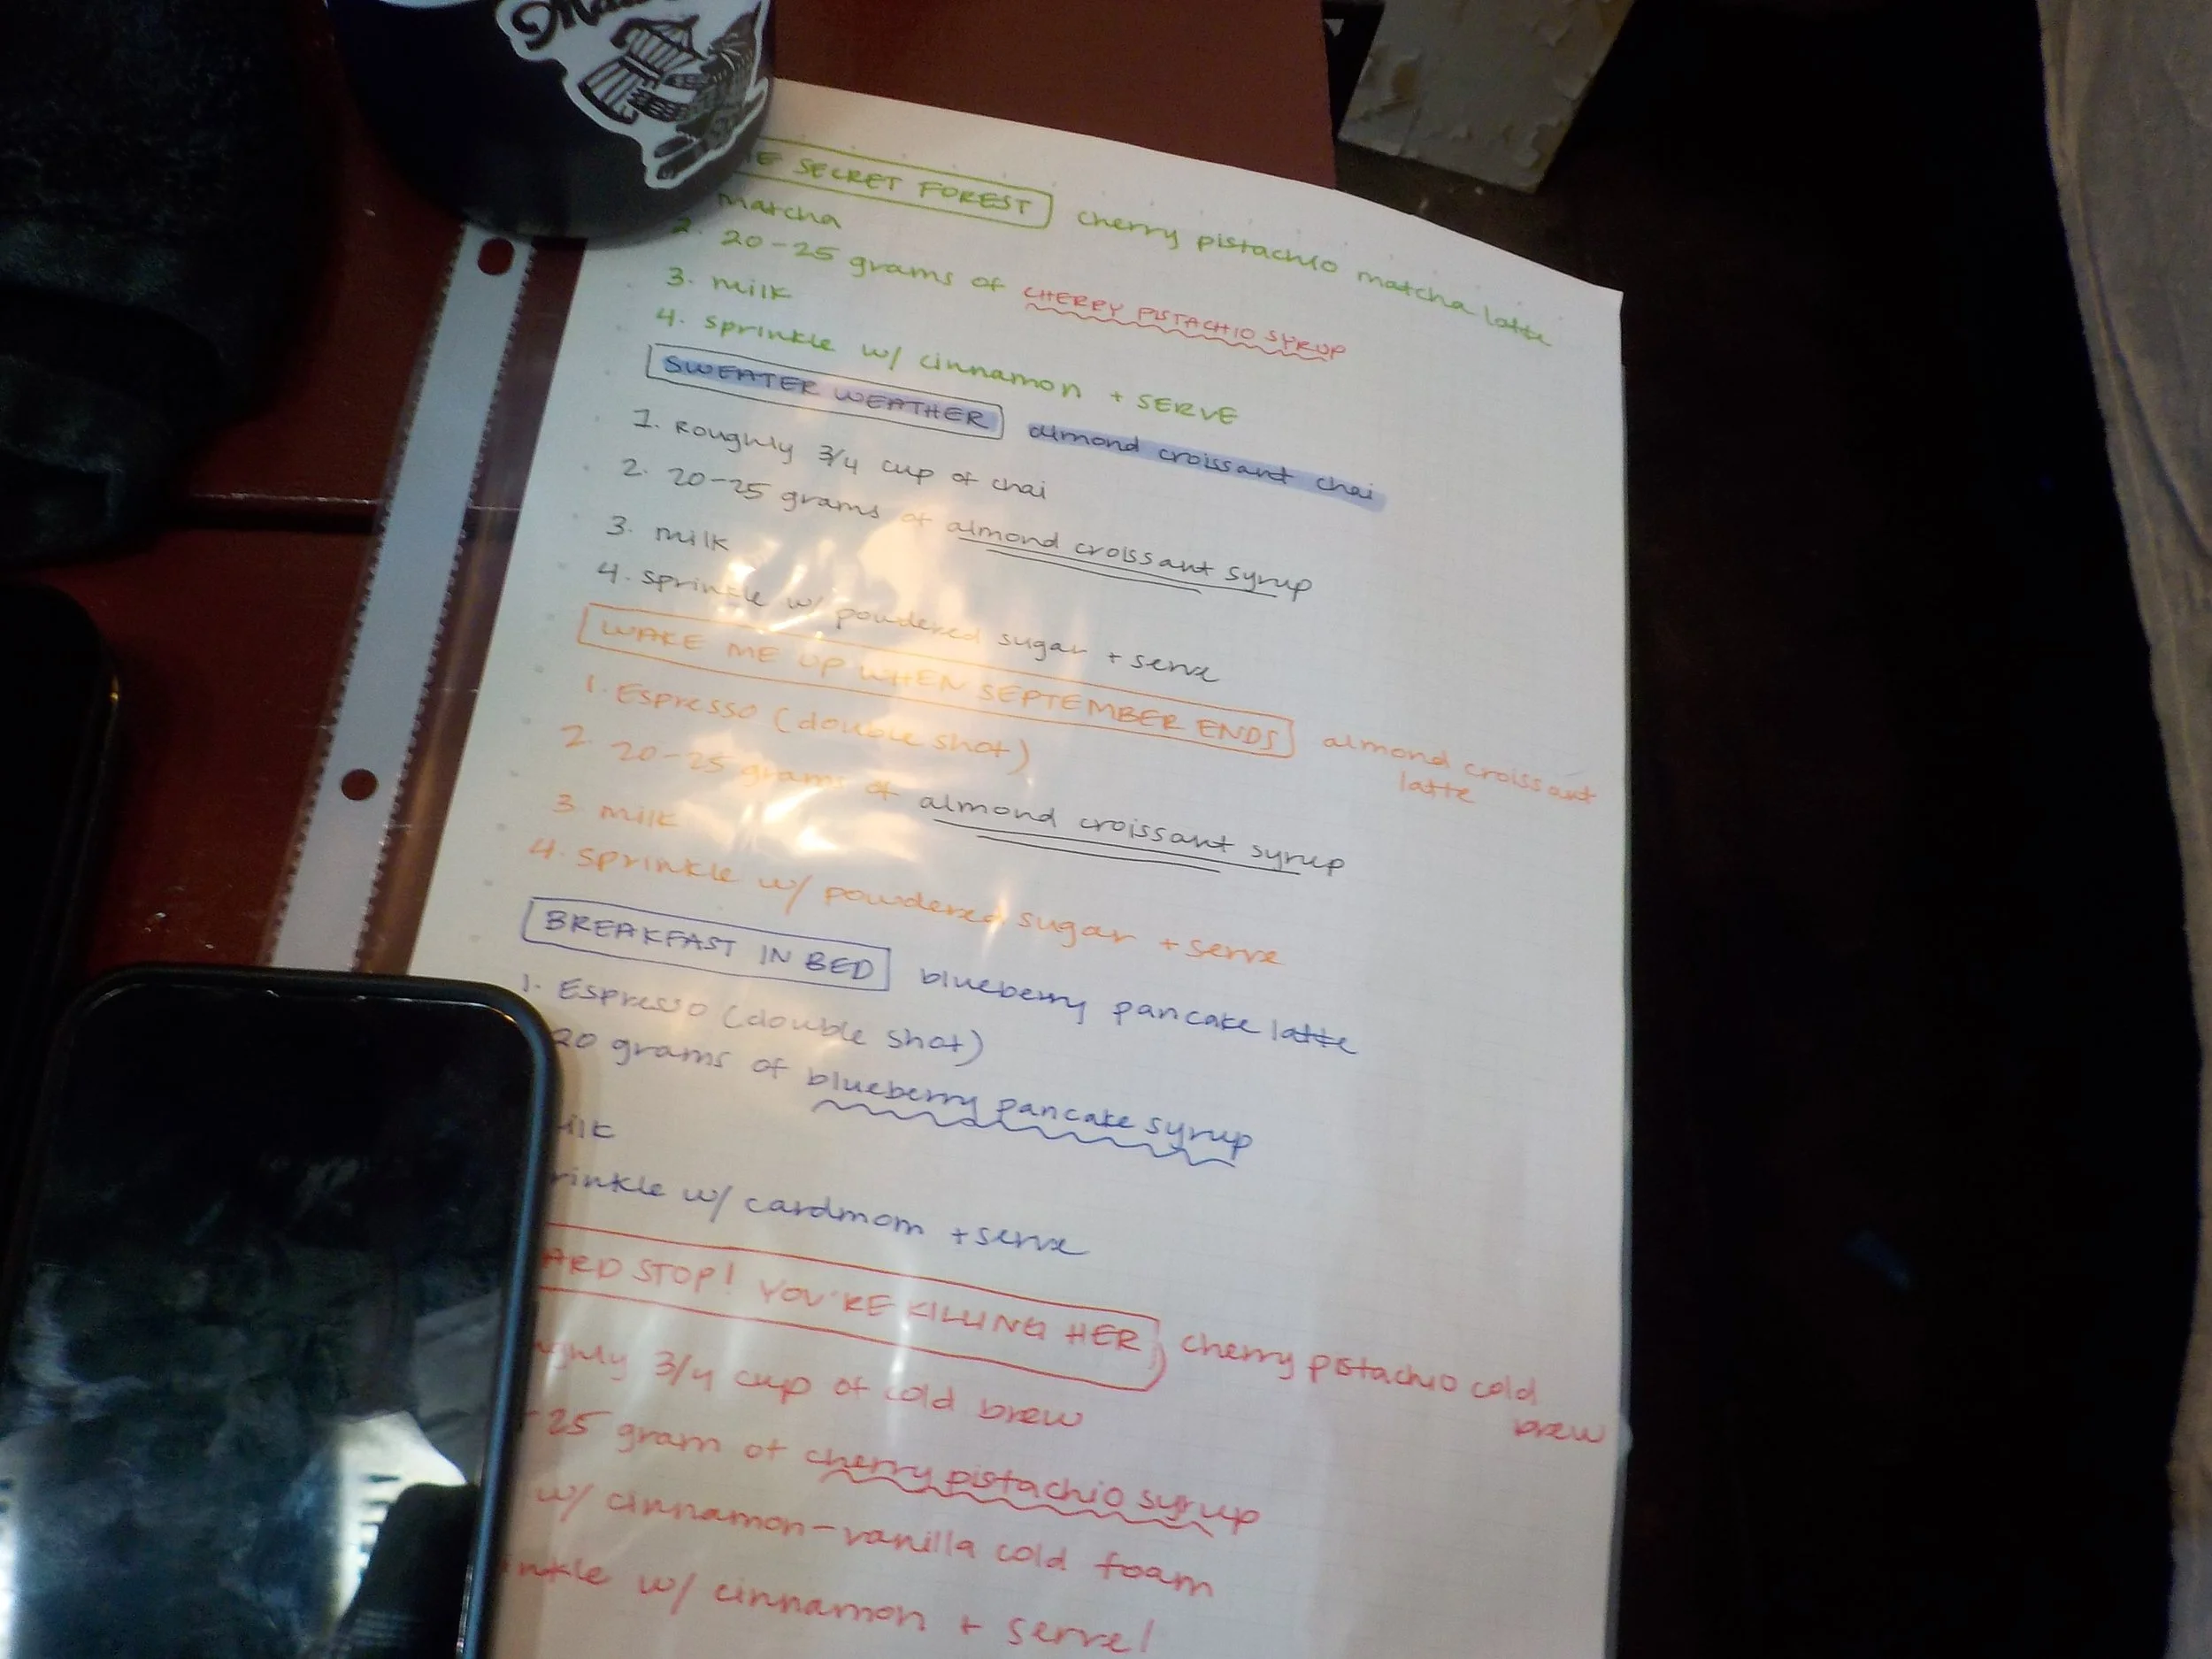 SECRET FOREST cherry pistachio matcha latte
matcha
2. 20-25 grams of CHERRY PISTACHIO SYRUP
3. milk
4. sprinkle w/ cinnamon + SERVE
SWEATER WEATHER almond croissant chai
1. roughly 3/4 cup of chai
2. 20-25 grams of almond croissant syrup
3. milk
4. sprinkle w/ powdered sugar + serve
WAKE ME UP WHEN SEPTEMBER ENDS almond croissant
latte
1. Espresso (double shot)
2. 20-25 grams of almond croissant syrup
3. milk
4. sprinkle w/ powdered sugar + serve
BREAKFAST IN BED blueberry pancake latte
1. Espresso (double shot)
20 grams of blueberry pancake syrup
w/ cardmom + serve
STOP! YOU'RE KILLING HER cherry pistachio cold
brew
3/4 cup of cold brew
25 gram of cherry pistachio syrup
w/ cinnamon-vanilla cold foam
w/ cinnamon + serve!